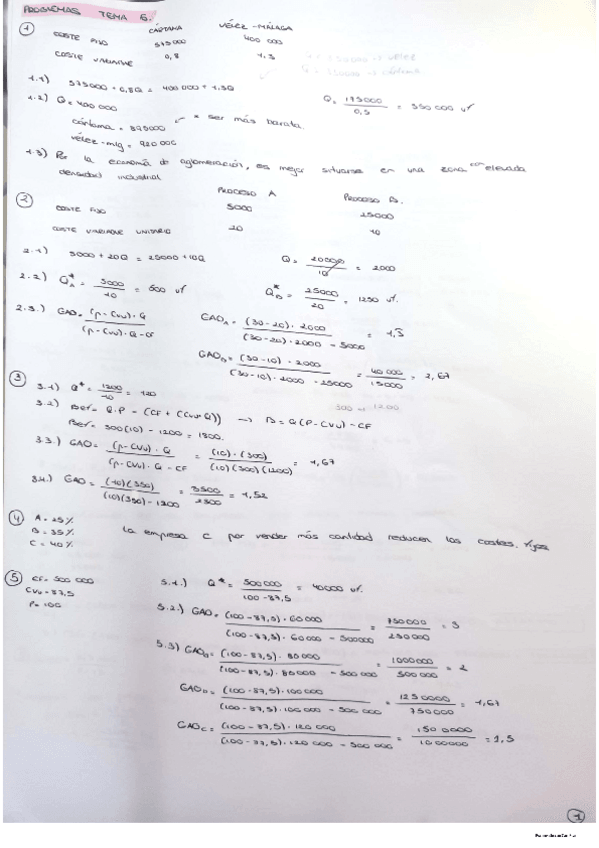 PROBLEMAS TEMA 6.
① CÁRTAMA VÉLEZ-MÁLAGA
COSTE FIJO 575000 400 000
COSTE VARIABLE 0,8 1,3
1.1) 575000 + 0,8Q = 400 000 + 1,3Q Q = 175000 / 0,5 = 350 000 uf
1.2) Q = 400 000
cártama = 895000 ← * ser más barata.
Vélez-mlg = 920 000
1.3) Por la economía de aglomeración, es mejor situarse en una zona con elevada
densidad industrial
② PROCESO A PROCESO B.
COSTE FIJO 5000 25000
COSTE VARIABLE UNITARIO 20 10
2.1) 5000 + 20Q = 25000 + 10Q Q = 20000 / 10 = 2000
2.2) Q*A = 5000 / 10 = 500 uf Q*B = 25000 / 20 = 1250 uf.
2.3.) GAO = (p - CVu) · Q / (p - CVu) · Q - CF GAOA = (30-20) · 2000 / (30-20) · 2000 - 5000 = 1,3
GAOB = (30-10) · 2000 / (30-10) · 2000 - 25000 = 40 000 / 15000 = 2,67
③ 3.1) Q* = 1200 / 10 = 120
3.2) Bef = Q·P - (CF + (CVu·Q)) → B = Q(P - CVu) - CF
Bef = 300(10) - 1200 = 1800.
3.3.) GAO = (p - CVu) · Q / (p - CVu) · Q - CF = (10) · (300) / (10)(300)(1200) = 1,67
3.4.) GAO = (10)(350) / (10)(350) - 1200 = 3500 / 2300 = 1,52
④ A = 25%
B = 35% la empresa C por vender más cantidad reducen los costes fijos
C = 40%
⑤ CF = 500 000 5.1.) Q* = 500 000 / 100 - 87,5 = 40000 uf.
CVu = 87,5
P = 100
5.2.) GAO = (100 - 87,5) · 60 000 / (100 - 87,5) · 60 000 - 500000 = 750 000 / 250 000 = 3
5.3) GAOB = (100 - 87,5) · 80000 / (100 - 87,5) · 80000 - 500 000 = 1000000 / 500 000 = 2
GAOD = (100 - 87,5) · 100 000 / (100 - 87,5) · 100 000 - 500 000 = 1250000 / 750 000 = 1,67
GAOC = (100 - 87,5) · 120 000 / (100 - 87,5) · 120 000 - 500 000 = 150 0000 / 1000000 = 1,5
1